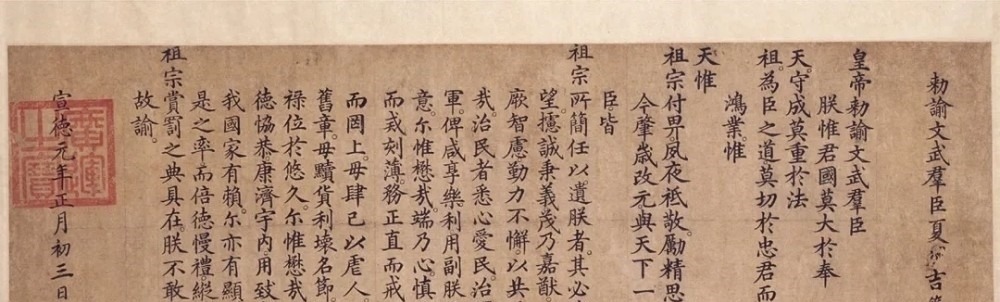 勅諭文武羣臣夏吉
皇帝勅諭文武羣臣
朕惟君國莫大於奉
天。守成莫重於法
祖。為臣之道莫切於忠君而
鴻業。惟
天惟
祖宗付畀。夙夜祗敬。勵精思
今肇歲改元與天下一
臣皆
祖宗所簡任以遺朕者。其必
望攄誠秉義茂乃嘉猷。
厥智慮勤力不懈。以共
哉。治民者悉心愛民。治
軍。俾咸享樂利用副朕
意。尔惟懋哉。端乃心慎
而戒刻薄。務正直而戒
而罔上。毋肆己以虐人
舊章。毋黷貨利壞名節。
祿位於悠久。尔惟懋哉
德恊恭。康濟宇内。用致
我國家有賴。尔亦有顯
是之率。而倍德慢禮。縱
祖宗賞罰之典具在。朕不敢
故諭。
宣德元年正月初三日
廣運之寶